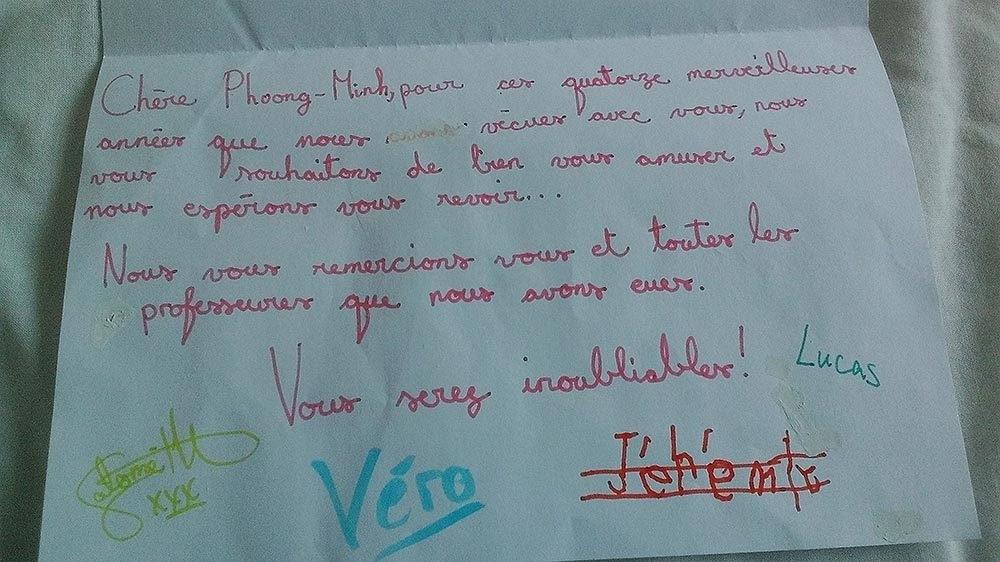 Chère Phoong-Minh, pour ces quatorze merveilleuses
années que nous avons vécues avec vous, nous
vous souhaitons de bien vous amuser et
nous espérons vous revoir...
Nous vous remercions vous et toutes les
professeures que nous avons eues.
Vous serez inoubliables!
Lucas
xxx
Véro